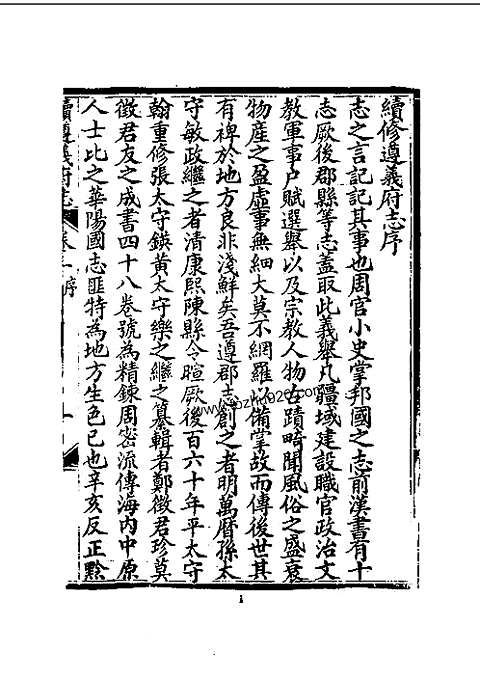 續修遵義府志序
志之言記記其事也周官小史掌邦國之志前漢書有十
志厥後郡縣等志蓋取此義舉凡疆域建設職官政治文
教軍事戶賦選舉以及宗教人物古蹟畸聞風俗之盛衰
物産之盈虛事無細大莫不網羅以備掌故而傳後世其
有裨於地方良非淺鮮矣吾遵郡志創之者明萬曆孫太
守敏政繼之者清康熙陳縣令暄厥後百六十年平太守
翰重修張太守鍈黄太守樂之繼之纂輯者鄭徵君珍莫
徵君友之成書四十八卷號為精鍊周密流傳海内中原
人士比之華陽國志匪特為地方生色已也辛亥反正黔
續遵義府志 序
1